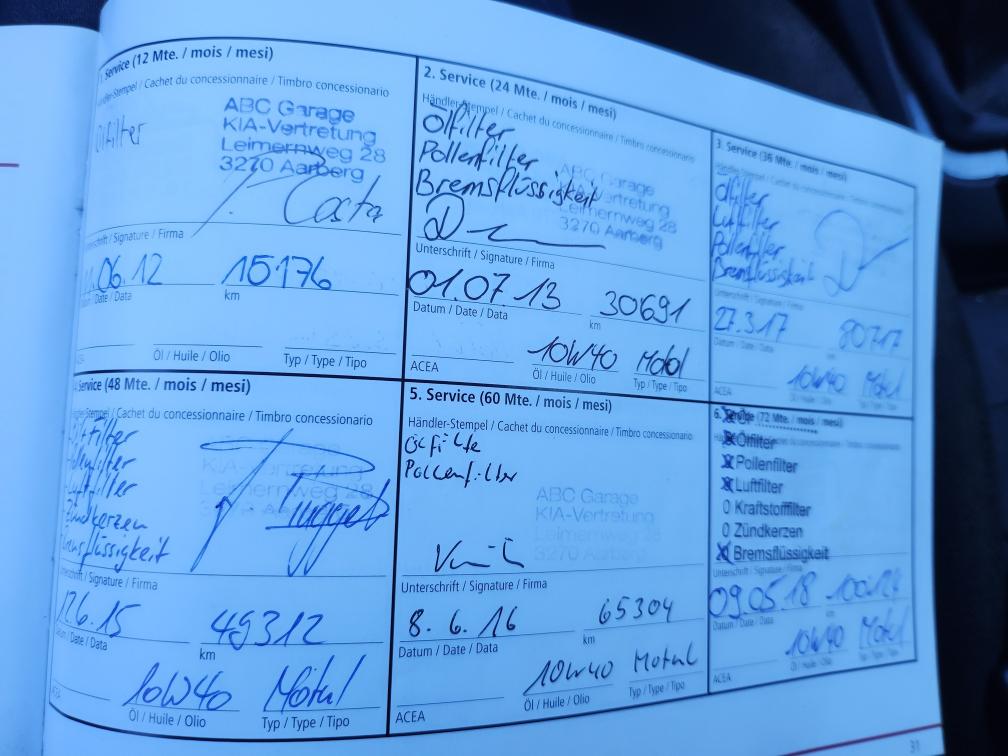 Service (12 Mte. / mois / mesi)
Händler-Stempel / Cachet du concessionnaire / Timbro concessionario
Ölfilter
ABC Garage
KIA-Vertretung
Leimernweg 28
3270 Aarberg
Costa
Unterschrift / Signature / Firma
06.12 15176
Datum / Date / Data km
ACEA Öl / Huile / Olio Typ / Type / Tipo
2. Service (24 Mte. / mois / mesi)
Händler-Stempel / Cachet du concessionnaire / Timbro concessionario
Ölfilter
Pollenfilter
Bremsflüssigkeit
ABC Garage
KIA-Vertretung
Leimernweg 28
3270 Aarberg
Unterschrift / Signature / Firma
01.07.13 30691
Datum / Date / Data km
10W40 Motul
ACEA Öl / Huile / Olio Typ / Type / Tipo
3. Service (36 Mte. / mois / mesi)
Händler-Stempel / Cachet du concessionnaire / Timbro concessionario
Ölfilter
Luftfilter
Pollenfilter
Bremsflüssigkeit
Unterschrift / Signature / Firma
27.3.17 80717
Datum / Date / Data km
10W40 Motul
ACEA Öl / Huile / Olio Typ / Type / Tipo
Service (48 Mte. / mois / mesi)
Händler-Stempel / Cachet du concessionnaire / Timbro concessionario
Pollenfilter
Luftfilter
Zündkerzen
Bremsflüssigkeit
KIA-Vertretung
Leimernweg 28
Unterschrift / Signature / Firma
12.6.15 49312
Datum / Date / Data km
10W40 Motul
ACEA Öl / Huile / Olio Typ / Type / Tipo
5. Service (60 Mte. / mois / mesi)
Händler-Stempel / Cachet du concessionnaire / Timbro concessionario
Ölfilte
Pollenfilter
ABC Garage
KIA-Vertretung
Leimernweg 28
3270 Aarberg
Unterschrift / Signature / Firma
8.6.16 65304
Datum / Date / Data km
10W40 Motul
ACEA Öl / Huile / Olio Typ / Type / Tipo
6. Service (72 Mte. / mois / mesi)
Ölfilter
Pollenfilter
Luftfilter
0 Kraftstofffilter
0 Zündkerzen
Bremsflüssigkeit
Unterschrift / Signature / Firma
09.05.18
Datum / Date / Data km
10W40 Motul
ACEA Öl / Huile / Olio Typ / Type / Tipo
31